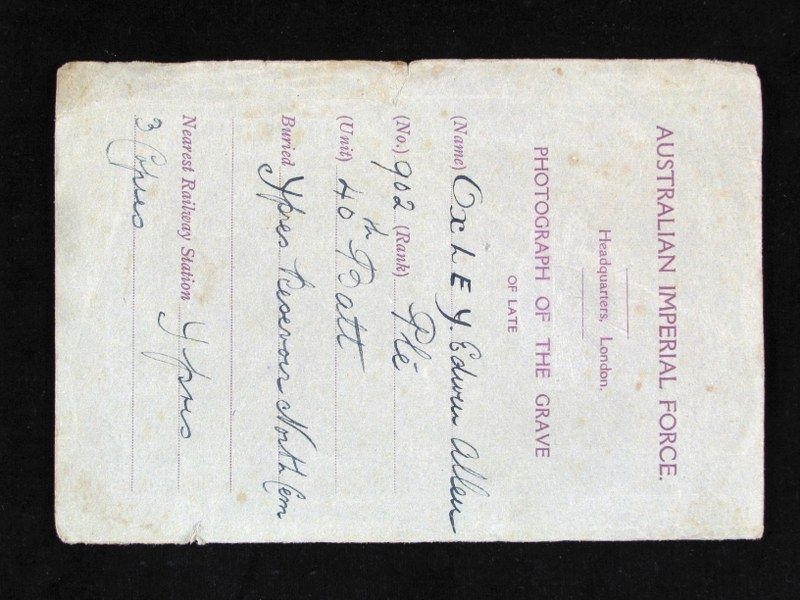 AUSTRALIAN IMPERIAL FORCE.
Headquarters, London.
PHOTOGRAPH OF THE GRAVE
OF LATE
(Name) OxLEY. Edwin Allen
(No.) 902 (Rank) Pte
(Unit) 40th Batt
Buried Ypres Reservoir North Cem
Nearest Railway Station Ypres
3 Copies